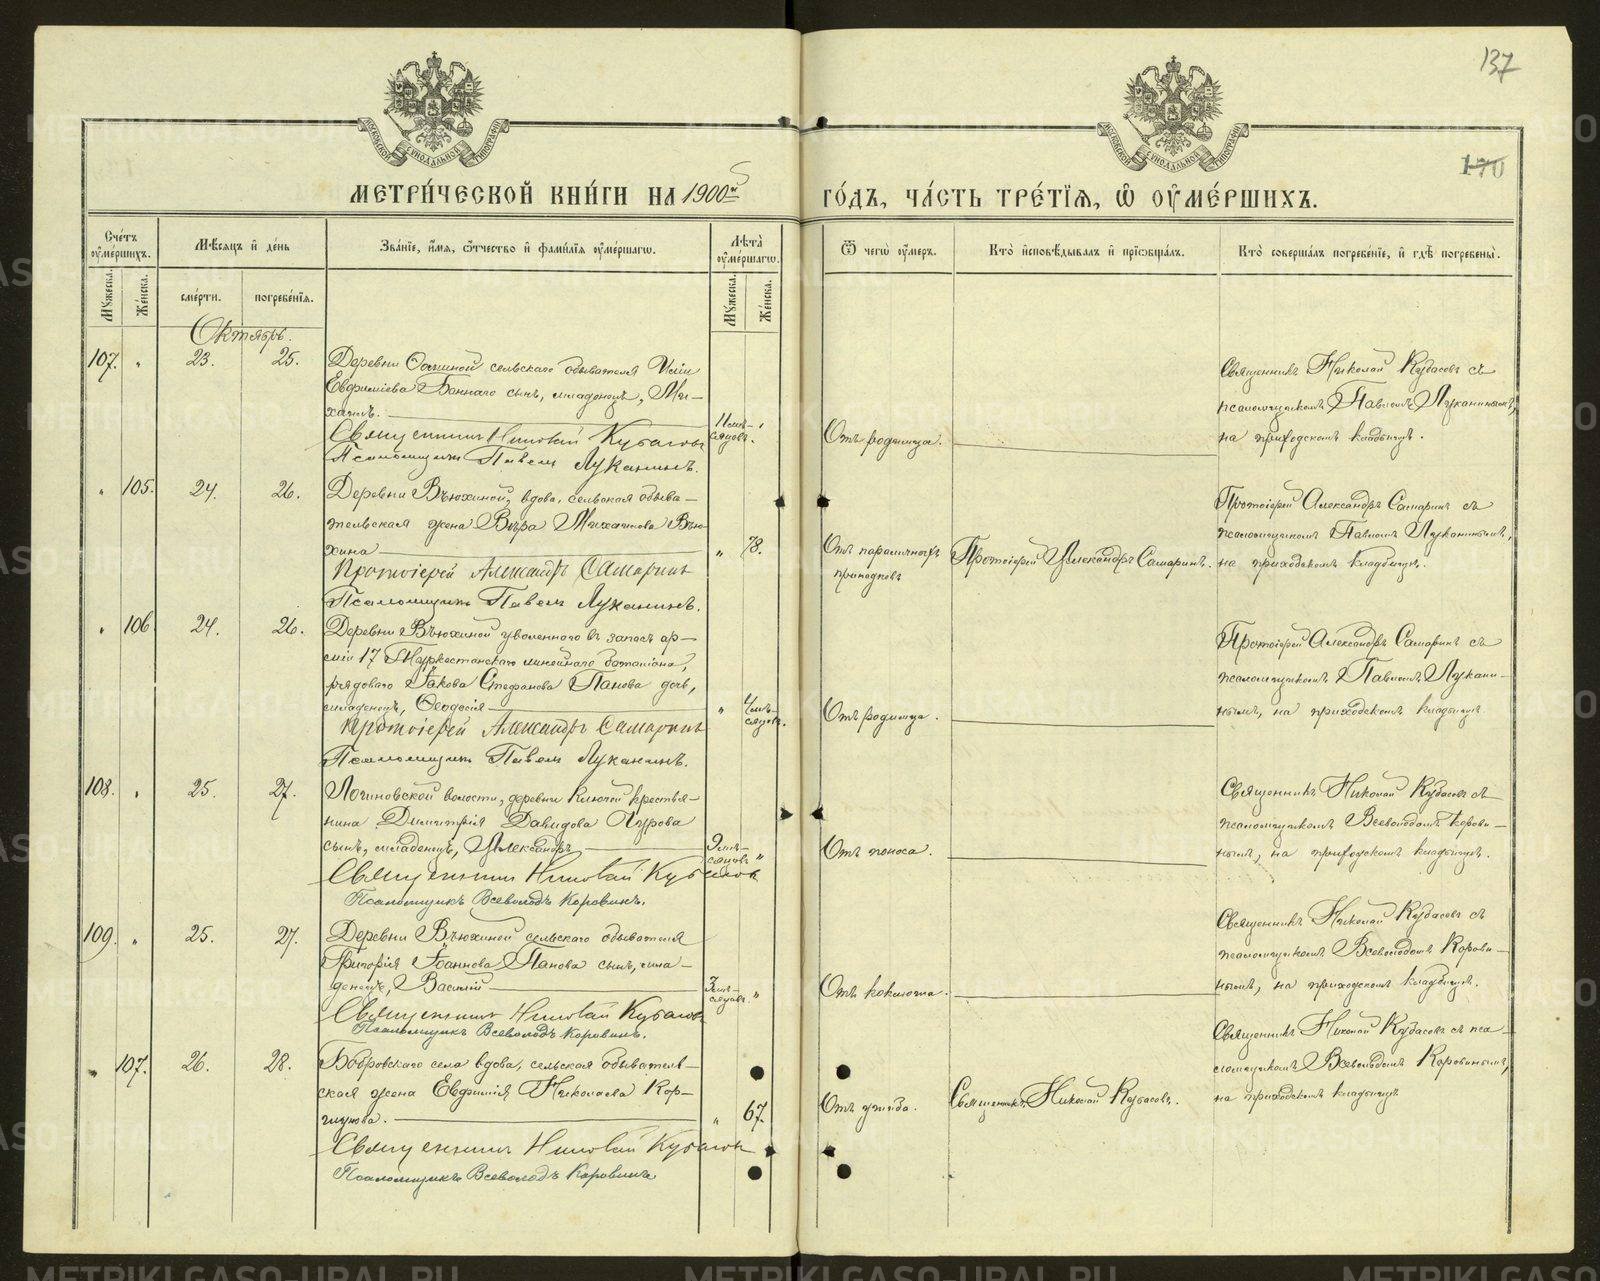 137
170
МОСКОВСКОЙ СѴНОДАЛЬНОЙ ТИПОГРАФІИ
МОСКОВСКОЙ СѴНОДАЛЬНОЙ ТИПОГРАФІИ
МЕТРИ́ЧЕСКОЙ КНИ́ГИ НА 1900й
ГО́ДЪ, ЧА́СТЬ ТРЕ́ТЇѦ, Ѽ ОУ҆МЕ́РШИХЪ.
Сче́тъ оумершихъ.
Мужеска.
Женска.
Мѣсяцъ и день
смерти.
погребенїя.
Званїе, имя, ѻтчество и фамилїя оумершагѡ.
Лѣта оумершагѡ.
Мужеска.
Женска.
Ѿ чегѡ оумеръ.
Кто исповѣдывалъ и прїобщалъ.
Кто совершалъ погребенїе, и гдѣ погребены.
Октябрь.
107. " 23. 25.
Деревни сельскаго обывателя
Евфиміева сынъ, младенецъ, Ми-
хаилъ.
Священникъ Николай Кубасовъ
Псаломщикъ Павелъ Луканинъ.
Отъ родимца.
Священникъ Николай Кубасовъ съ
псаломщикомъ Павломъ Луканинымъ,
на приходскомъ кладбищѣ.
" 105. 24. 26.
Деревни Вьюхиной, вдова, сельская обыва-
тельская жена Вѣра Михаилова Вью-
хина
" 78.
Протоіерей Александръ Самаринъ
Псаломщикъ Павелъ Луканинъ.
Отъ параличныхъ
припадковъ
Протоіерей Александръ Самаринъ.
Протоіерей Александръ Самаринъ съ
псаломщикомъ Павломъ Луканинымъ,
на приходскомъ кладбищѣ.
" 106 24. 26.
Деревни Вьюхиной уволеннаго въ запасъ ар-
міи 17 Туркестанскаго линейнаго баталіона,
рядоваго Іакова Стефанова Панова дочь,
младенецъ, Ѳеодосія
Протоіерей Александръ Самаринъ
Псаломщикъ Павелъ Луканинъ.
Отъ родимца.
Протоіерей Александръ Самаринъ съ
псаломщикомъ Павломъ Лукани-
нымъ, на приходскомъ кладбищѣ
108. " 25. 27.
Логиновской волости, деревни Ключей крестья-
нина Димитрія Давидова
сынъ, младенецъ, Александръ
Священникъ Николай Кубасовъ
Псаломщикъ Всеволодъ Коровинъ.
Отъ поноса.
Священникъ Николай Кубасовъ съ
псаломщикомъ Всеволодомъ Корови-
нымъ, на приходскомъ кладбищѣ.
109. " 25. 27.
Деревни Вьюхиной сельскаго обывателя
Григорія Іоаннова Панова сынъ, мла-
денецъ, Василій
Священникъ Николай Кубасовъ
Псаломщикъ Всеволодъ Коровинъ.
Отъ коклюша.
Священникъ Николай Кубасовъ съ
псаломщикомъ Всеволодомъ Корови-
нымъ, на приходскомъ кладбищѣ.
" 107. 26. 28.
Бобровскаго села вдова, сельская обыватель-
ская жена Евфимія Николаева Кор-
" 67.
Священникъ Николай Кубасовъ
Псаломщикъ Всеволодъ Коровинъ.
Отъ
Священникъ Николай Кубасовъ.
Священникъ Николай Кубасовъ съ пса-
ломщикомъ Всеволодомъ Коровинымъ,
на приходскомъ кладбищѣ
METRIKI.GASO-URAL.RU